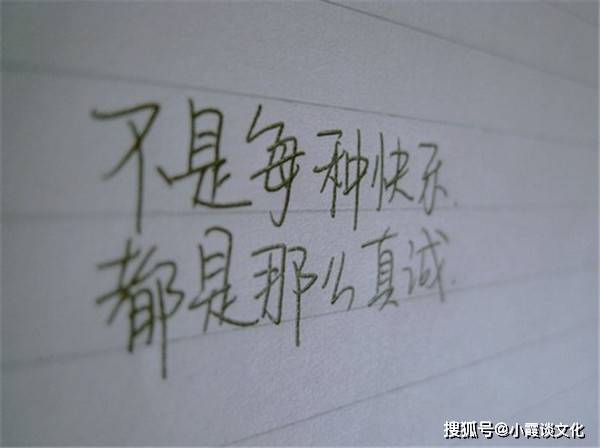 不是每种快乐.
都是那么真诚.
搜狐号@小霞谈文化